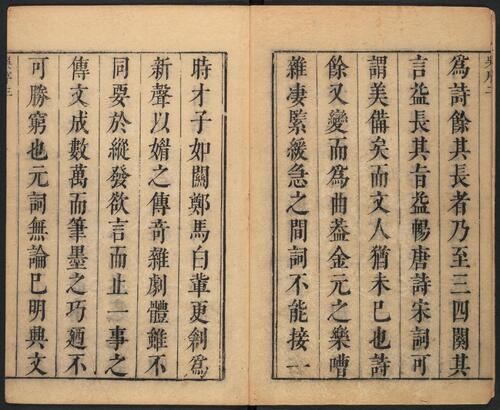 爲詩餘其長者乃至三四闋其
言益長其旨益暢唐詩宋詞可
謂美備矣而文人猶未已也詩
餘又變而爲曲葢金元之樂嘈
雜凄緊緩急之間詞不能接一
時才子如關鄭馬白輩更剏爲
新聲以媚之傳奇雜劇體雖不
同要於縱發欲言而止一事之
傳文成數萬而筆墨之巧廼不
可勝窮也元詞無論已明興文